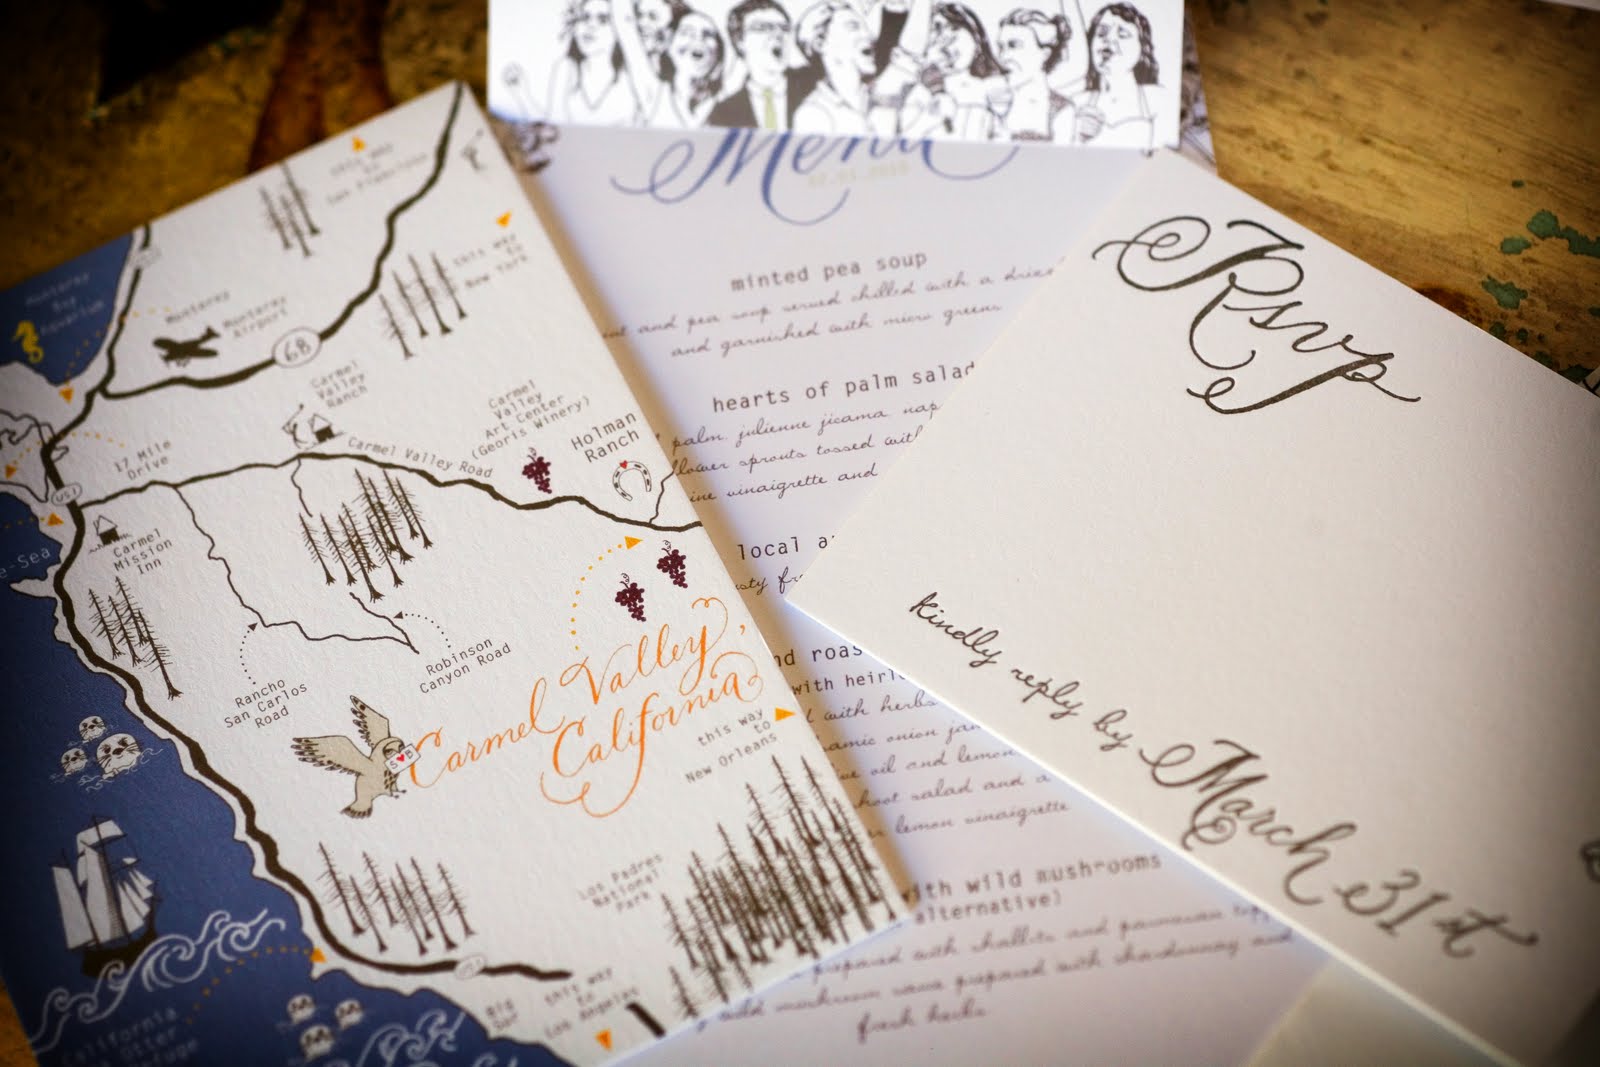 this way
to
San Francisco
this way
to
New York
Monterey
Bay
Aquarium
Monterey
Monterey
Airport
68
Carmel
Valley
Ranch
Carmel
Valley
Art Center
(Georis Winery)
Holman
Ranch
Carmel Valley Road
17 Mile
Drive
US1
Carmel
Mission
Inn
Rancho
San Carlos
Road
Robinson
Canyon Road
S B
Carmel Valley,
California
this way
to
New Orleans
Los Padres
National
Park
Big
Sur
this way
to
Los Angeles
California
Otter
Menu
minted pea soup
and pea soup served chilled with a
and garnished with micro greens
hearts of palm salad
palm, julienne jicama, nap
sprouts tossed with
vinaigrette and
local
with
with herbs
onion
oil and lemon
salad and a
lemon vinaigrette
with wild mushrooms
alternative)
prepared with shallots and parmesan
wild mushroom sauce prepared with chardonnay and
fresh herbs
Rsvp
kindly reply by March 31st